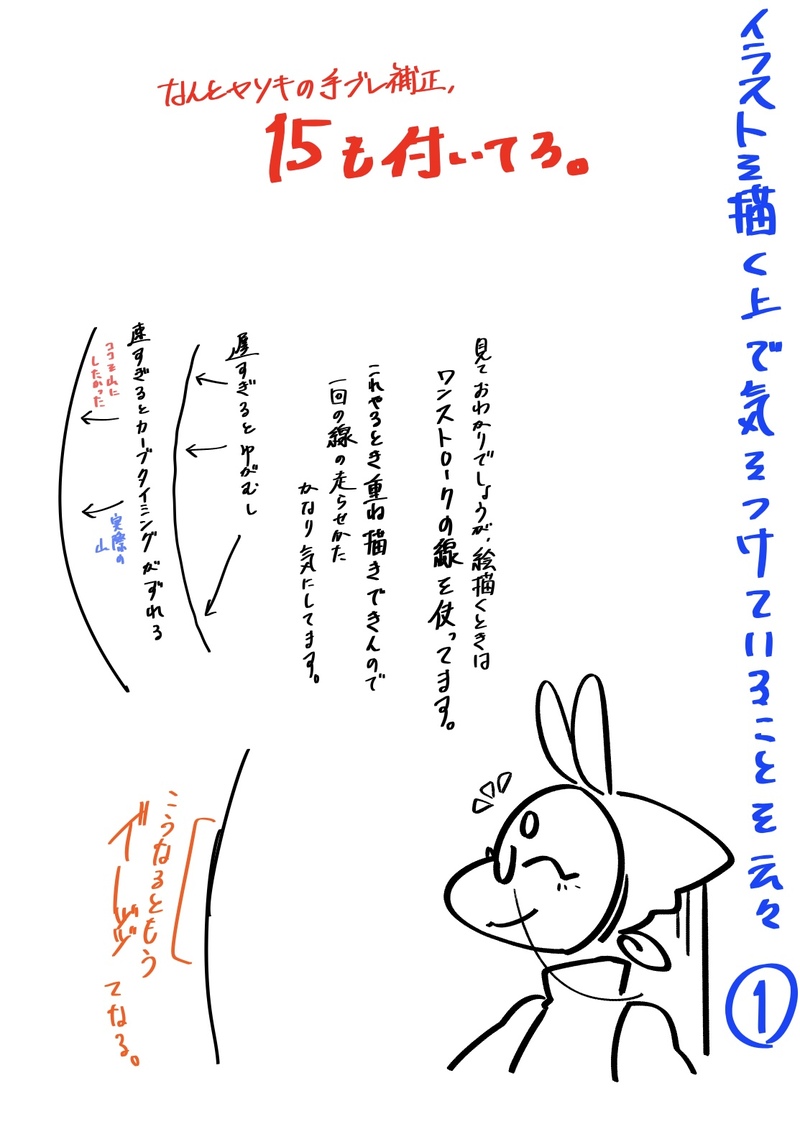 イラストを描く上で気をつけていることを云々①
なんとヤソキの手ブレ補正、
15も付いてる。
見ておわかりでしょうが、絵描くときは
ワンストロークの線を使ってます。
これやるとき重ね描きできんので
一回の線の走らせかた
かなり気にしてます。
遅すぎるとゆがむし
速すぎるとカーブタイミングがずれる
ココを山に
したかった
実際の
山
こうなるともう
てなる。